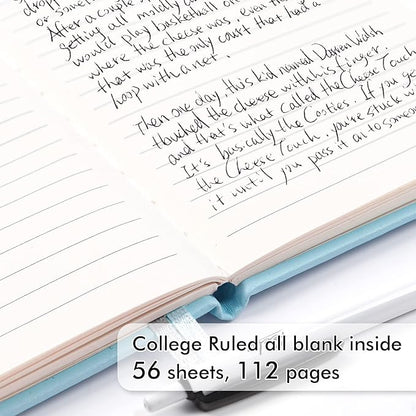 After a couple
getting all mildly
would play basketball o
where the cheese was, even th
that was the only court that had a
hoop with a net.
Then one day, this kid named Darren Walsh
touched the cheese with his finger,
and that's what called the Cheese Touch.
It's basically the Cooties. If you ge
the Cheese Touch, you're stuck w
it until you pass it on to someo
College Ruled all blank inside
56 sheets, 112 pages